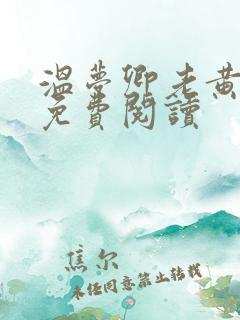 溫夢卿老黃
免費閱讀
焦尔
未经同意禁止转载